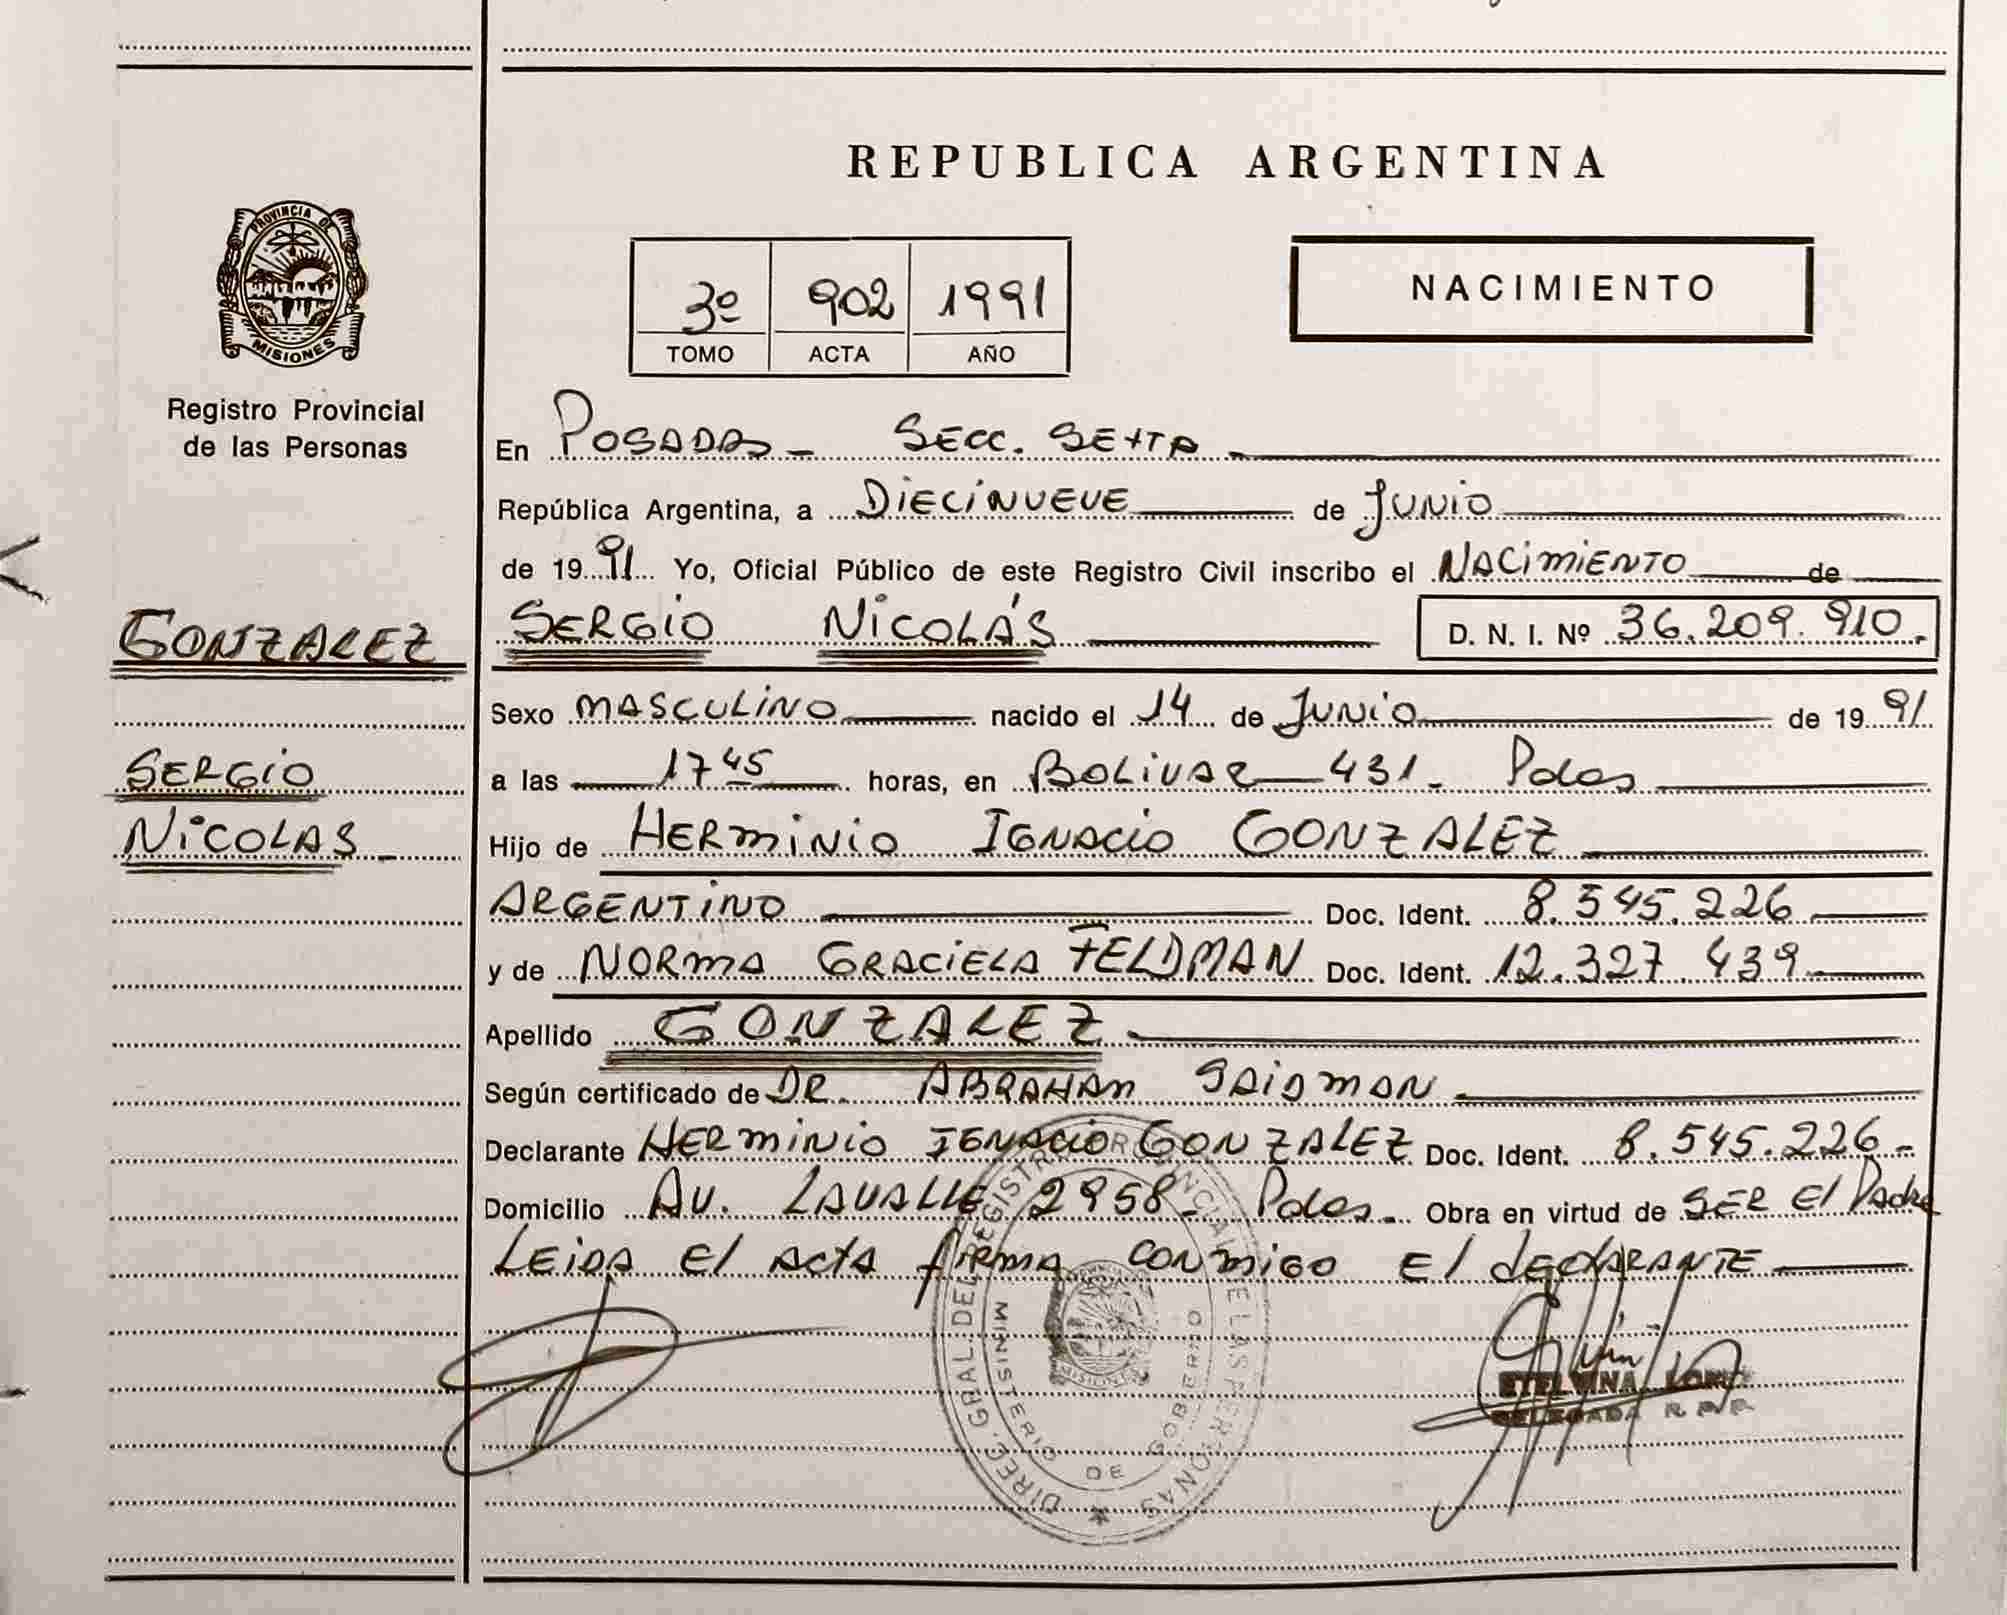 REPUBLICA ARGENTINA
PROVINCIA DE
MISIONES
Registro Provincial
de las Personas
3º 902 1991
TOMO ACTA AÑO
NACIMIENTO
En POSADAS - SECC. SEXTA
República Argentina, a DIECINUEVE de JUNIO
de 1991 Yo, Oficial Público de este Registro Civil inscribo el NACIMIENTO de
SERGIO NICOLÁS D. N. I. Nº 36.209.910.
GONZALEZ
SERGIO
NICOLAS -
Sexo MASCULINO nacido el 14 de JUNIO de 1991
a las 17 45 horas, en BOLIVAR 431 - Pdas
Hijo de HERMINIO IGNACIO GONZALEZ
ARGENTINO Doc. Ident. 8.545.226
y de NORMA GRACIELA FELDMAN Doc. Ident. 12.327.439
Apellido GONZALEZ
Según certificado de DR. ABRAHAM SAIDMAN
Declarante HERMINIO IGNACIO GONZALEZ Doc. Ident. 8.545.226-
Domicilio AV. LAVALLE 2958 - Pdas. Obra en virtud de SER El Padre
LEIDA El ActA fIRMA CONMIGO El decLARANTE
DIREC. GRAL. DEL REGISTRO PROVINCIAL DE LAS PERSONAS
MINISTERIO DE GOBIERNO
MISIONES
ETELVINA
DELEGADA R P P